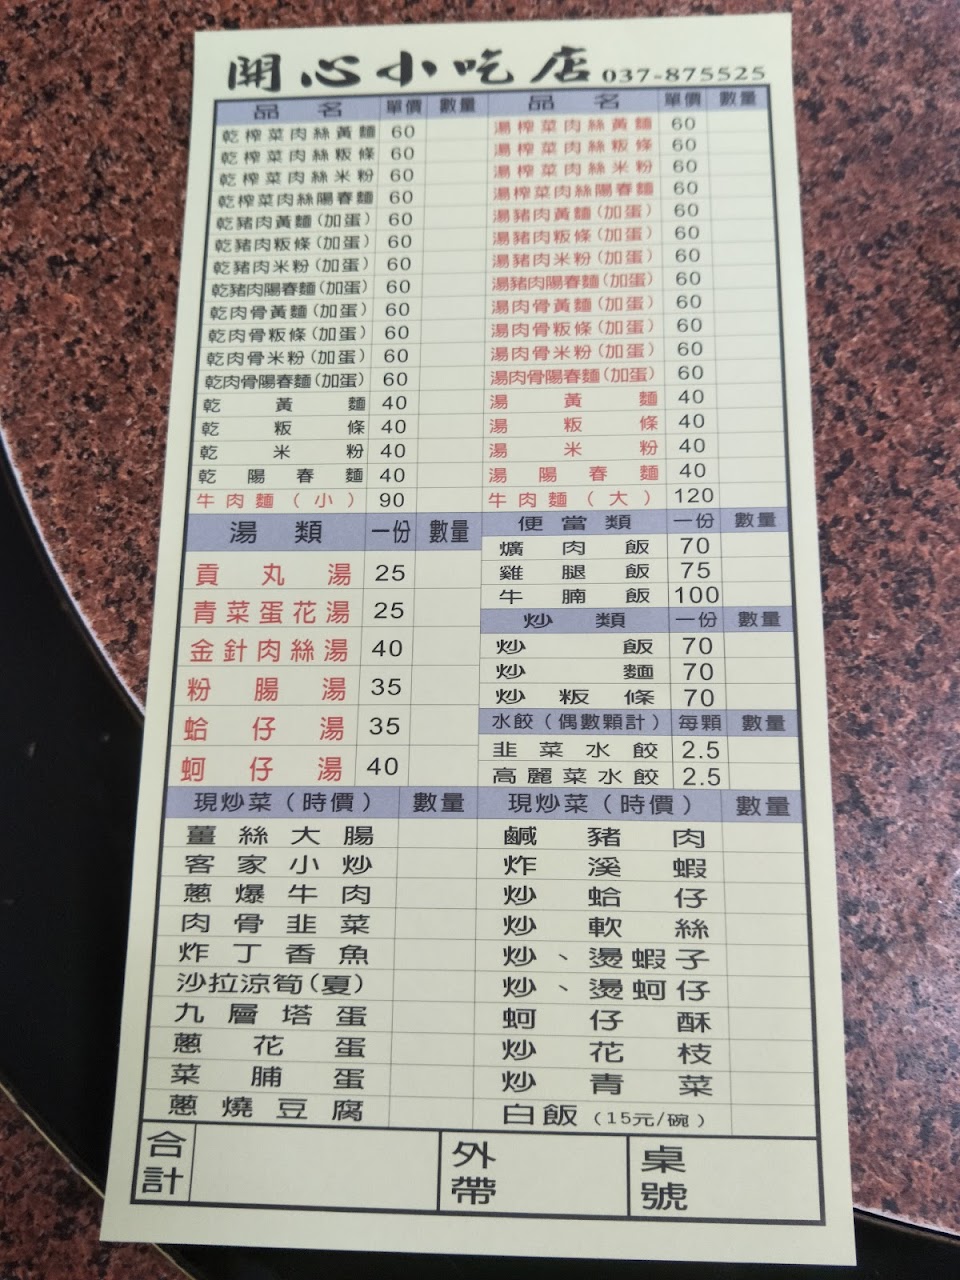 開心小吃店 037-875525
品名 單價 數量 品名 單價 數量
乾榨菜肉絲黃麵 60 湯榨菜肉絲黃麵 60
乾榨菜肉絲粄條 60 湯榨菜肉絲粄條 60
乾榨菜肉絲米粉 60 湯榨菜肉絲米粉 60
乾榨菜肉絲陽春麵 60 湯榨菜肉絲陽春麵 60
乾豬肉黃麵(加蛋) 60 湯豬肉黃麵(加蛋) 60
乾豬肉粄條(加蛋) 60 湯豬肉粄條(加蛋) 60
乾豬肉米粉(加蛋) 60 湯豬肉米粉(加蛋) 60
乾豬肉陽春麵(加蛋) 60 湯豬肉陽春麵(加蛋) 60
乾肉骨黃麵(加蛋) 60 湯肉骨黃麵(加蛋) 60
乾肉骨粄條(加蛋) 60 湯肉骨粄條(加蛋) 60
乾肉骨米粉(加蛋) 60 湯肉骨米粉(加蛋) 60
乾肉骨陽春麵(加蛋) 60 湯肉骨陽春麵(加蛋) 60
乾黃麵 40 湯黃麵 40
乾粄條 40 湯粄條 40
乾米粉 40 湯米粉 40
乾陽春麵 40 湯陽春麵 40
牛肉麵(小) 90 牛肉麵(大) 120
湯類 一份 數量
貢丸湯 25
青菜蛋花湯 25
金針肉絲湯 40
粉腸湯 35
蛤仔湯 35
蚵仔湯 40
便當類 一份 數量
爌肉飯 70
雞腿飯 75
牛腩飯 100
炒類 一份 數量
炒飯 70
炒麵 70
炒粄條 70
水餃(偶數顆計) 每顆 數量
韭菜水餃 2.5
高麗菜水餃 2.5
現炒菜(時價) 數量 現炒菜(時價) 數量
薑絲大腸 鹹豬肉
客家小炒 炸溪蝦
蔥爆牛肉 炒蛤仔
肉骨韭菜 炒軟絲
炸丁香魚 炒、燙蝦子
沙拉涼筍(夏) 炒、燙蚵仔
九層塔蛋 蚵仔酥
蔥花蛋 炒花枝
菜脯蛋 炒青菜
蔥燒豆腐 白飯(15元/碗)
合計 外帶 桌號